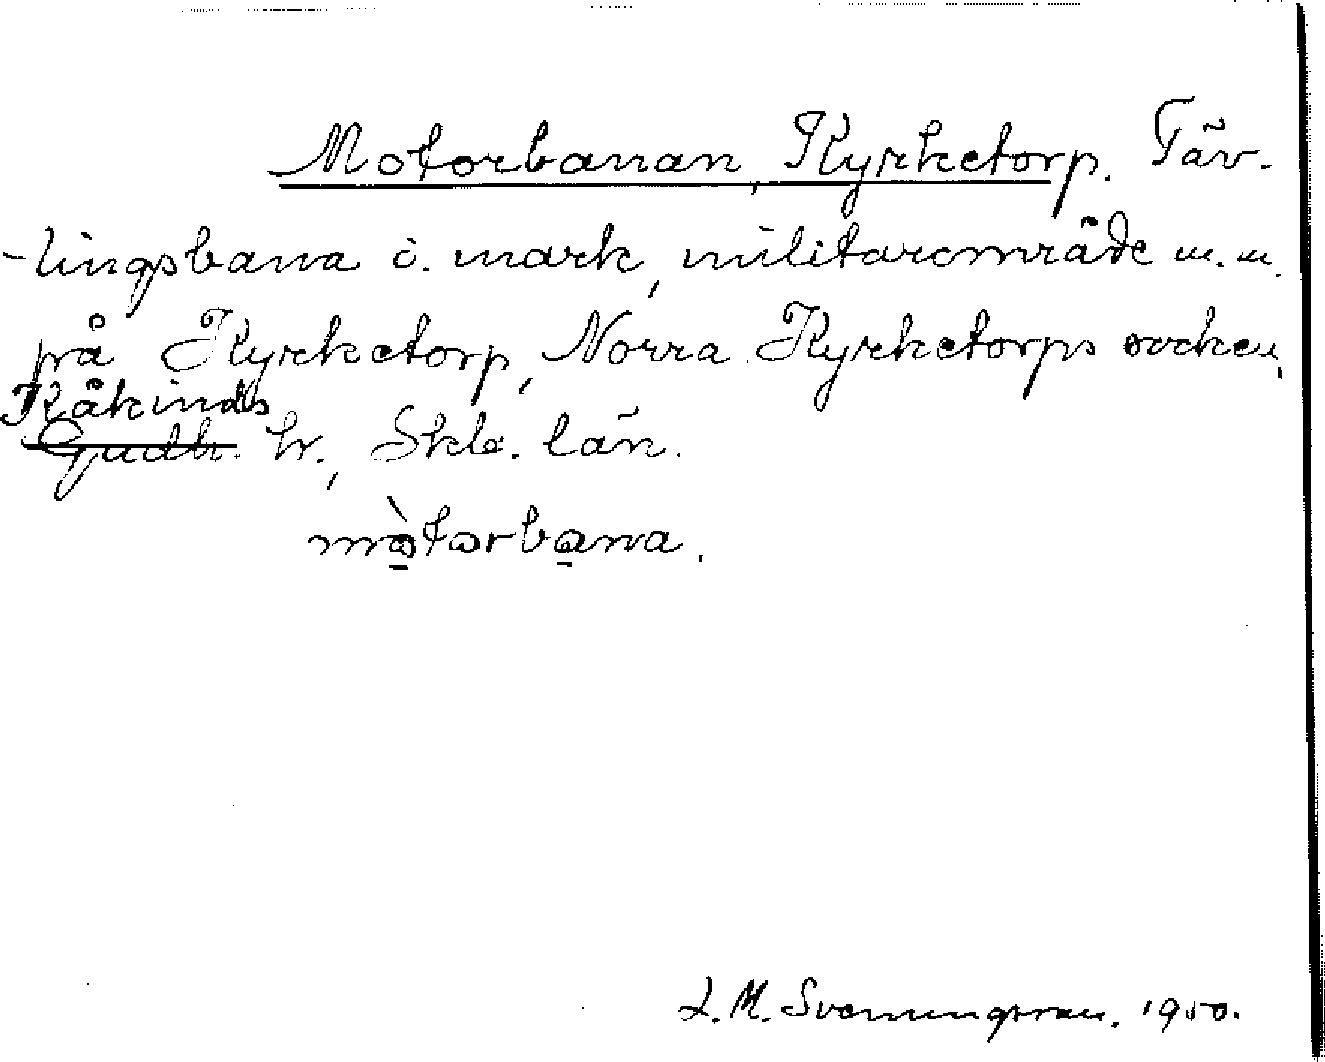 Motorbanan, Kyrketorp. Täv-
-lingsbana i. mark, militärområde m.m.
på Kyrketorp, Norra Kyrketorps socken,
Kåkinds
Gudh. hr., Skb. län.
mòtorbana.
L.M. Svenningsson. 1950.